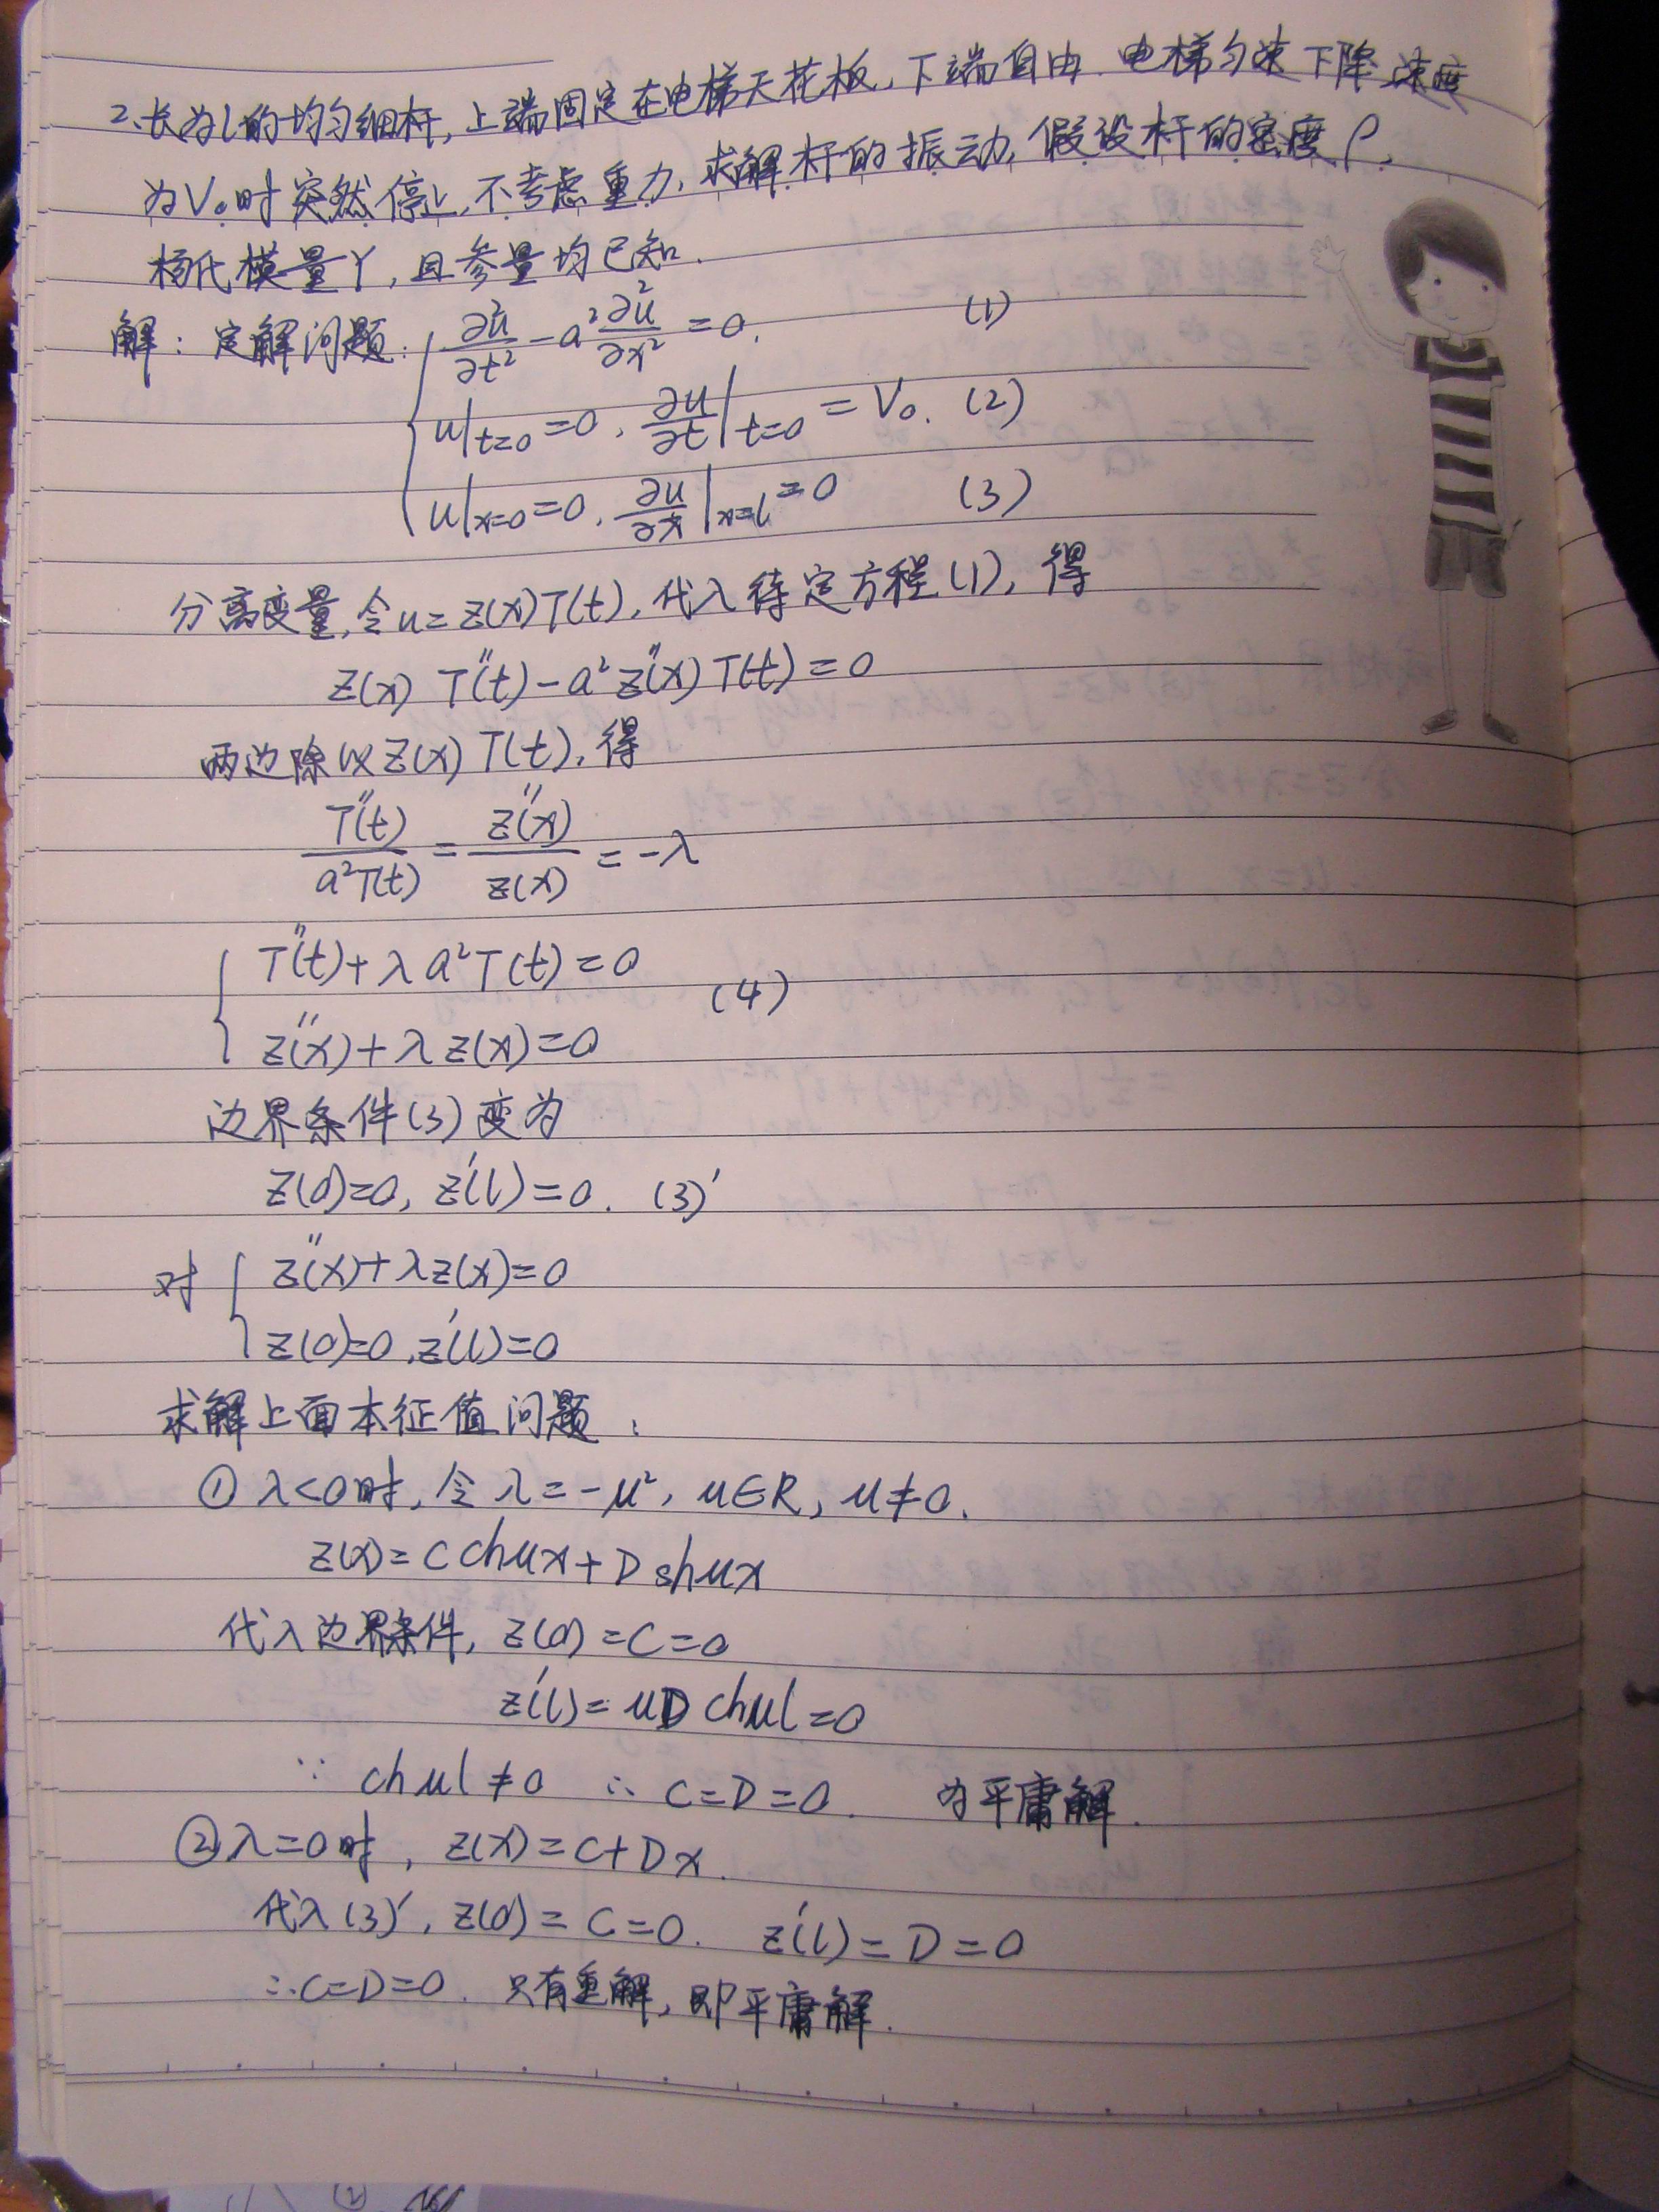 2、长为l的均匀细杆,上端固定在电梯天花板,下端自由.电梯匀速下降,速度
为V₀时突然停止,不考虑重力,求解杆的振动,假设杆的密度ρ,
杨氏模量Y,且参量均已知.
解:定解问题: { ∂²u/∂t² - a² ∂²u/∂x² = 0. (1)
u|t=0 = 0, ∂u/∂t|t=0 = V₀. (2)
u|x=0 = 0, ∂u/∂x|x=l = 0 (3)
分离变量,令u=Z(x)T(t),代入待定方程(1),得
Z(x) T''(t) - a² Z''(x) T(t) = 0
两边除以Z(x)T(t),得
T''(t)/a²T(t) = Z''(x)/Z(x) = -λ
{ T''(t) + λa²T(t) = 0
(4)
Z''(x) + λZ(x) = 0
边界条件(3)变为
Z(0)=0, Z'(l)=0. (3)'
对 { Z''(x) + λZ(x) = 0
Z(0)=0, Z'(l)=0
求解上面本征值问题:
① λ<0时,令λ=-μ², μ∈R, μ≠0.
Z(x) = C chμx + D shμx
代入边界条件, Z(0)=C=0
Z'(l) = μD chμl = 0
∵ chμl ≠ 0 ∴ C=D=0. 为平庸解.
② λ=0时, Z(x)=C+Dx.
代入(3)', Z(0)=C=0. Z'(l)=D=0
∴C=D=0. 只有零解,即平庸解.